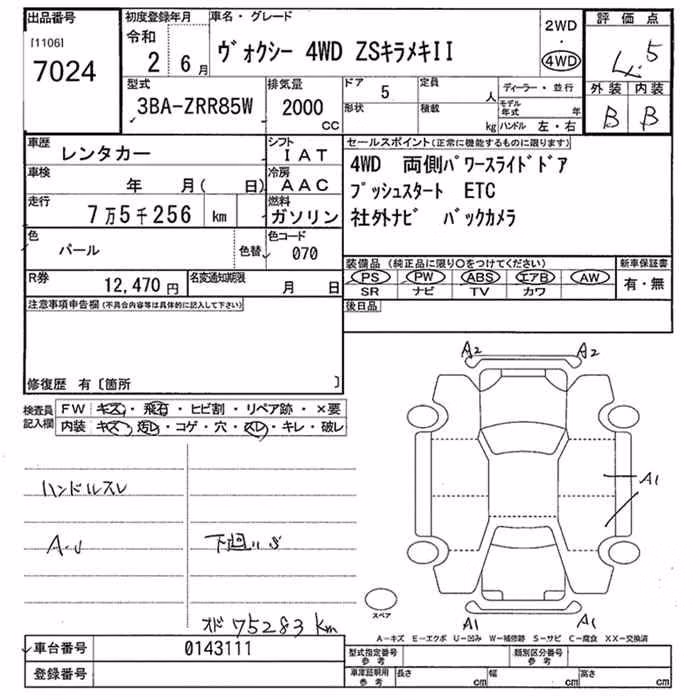 出品番号 初度登録年月 車名・グレード 評価点
[1106]
7024
令和
2 6月
ヴォクシー 4WD ZSキラメキII
2WD
・
4WD
4.5
型式 排気量 ドア 定員 ディーラー・並行 外装 内装
3BA-ZRR85W 2000 CC 5 人
形状 積載 kg モデル年式 年
ハンドル 左・右
B B
車歴 レンタカー シフト IAT
車検 年 月( 日) 冷房 AAC
走行 7万5千256 km 燃料 ガソリン
色 パール 色替 色コード 070
R券 12,470円 名変通知期限 月 日
セールスポイント(正常に機能するものに限ります)
4WD 両側パワースライドドア
プッシュスタート ETC
社外ナビ バックカメラ
装備品(純正品に限り○をつけてください) 新車保証書
PS PW ABS エアB AW 有・無
SR ナビ TV カワ
後日品
注意事項申告欄(不具合内容等は具体的に記入して下さい)
修復歴 有〔箇所 〕
検査員記入欄 FW キズ・飛石・ヒビ割・リペア跡・×要
内装 キズ・汚レ・コゲ・穴・スレ・キレ・破レ
ハンドルスレ
A・U 下廻りS
オド 75283km
A2 A2
A1
A1 A1
スペア
A−キズ E−エクボ U−凹み W−補修跡 S−サビ C−腐食 XX−交換済
車台番号 0143111
登録番号
型式指定番号 参考 類別区分番号 参考
車庫証明用 参考 長さ cm 幅 cm 高さ cm